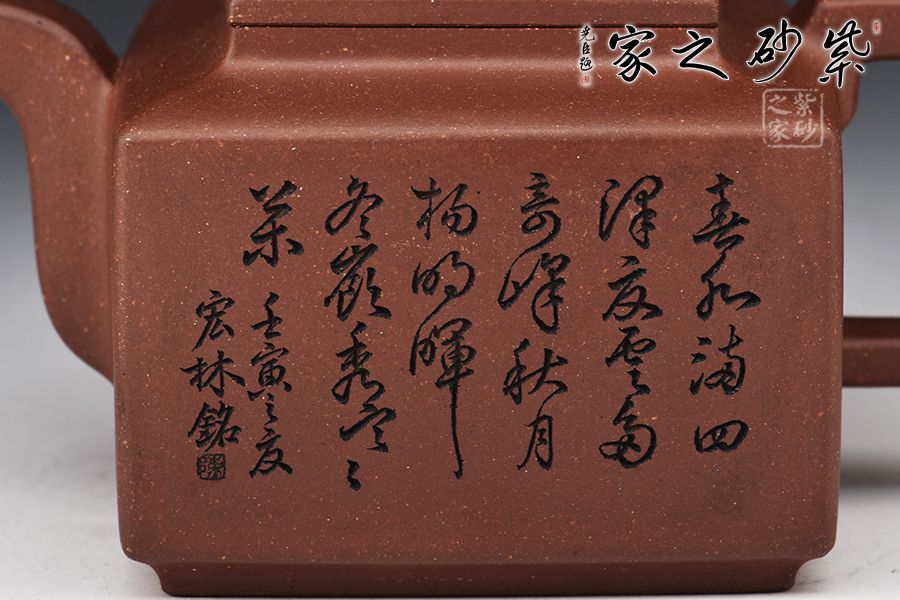 紫砂之家
堯臣題
紫砂之家
春水滿四
澤夏雲多
奇峰秋月
揚明暉
冬嶺秀寒
枩 壬寅之夏
宏林銘